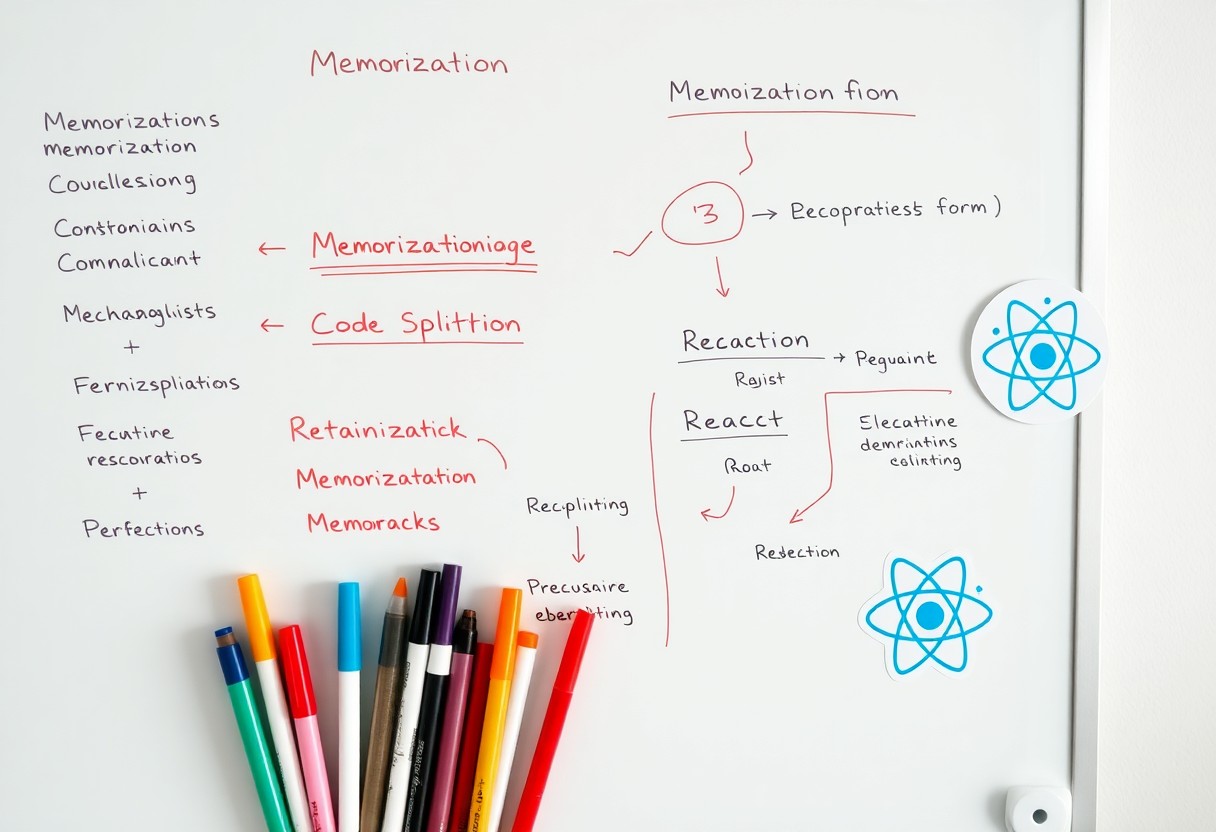 Memorization
Memorizations
memorization
Couicllesiong
Constoniains
Comnalicant
Mechanglists
+
Fernizspliatiois
Fecutine
rescoiratios
+
Perfections
← Memorizationioge
← Code Splittion
Retainizatick
Memorizatation
Memoracks
Recpliiting
Precusaire
Memoization fion
3 → Eecopratiest form)
Recaction → Peguaint
Rajist
Reacct
Roat
Elecattine
demrintins
eslinting
Resection